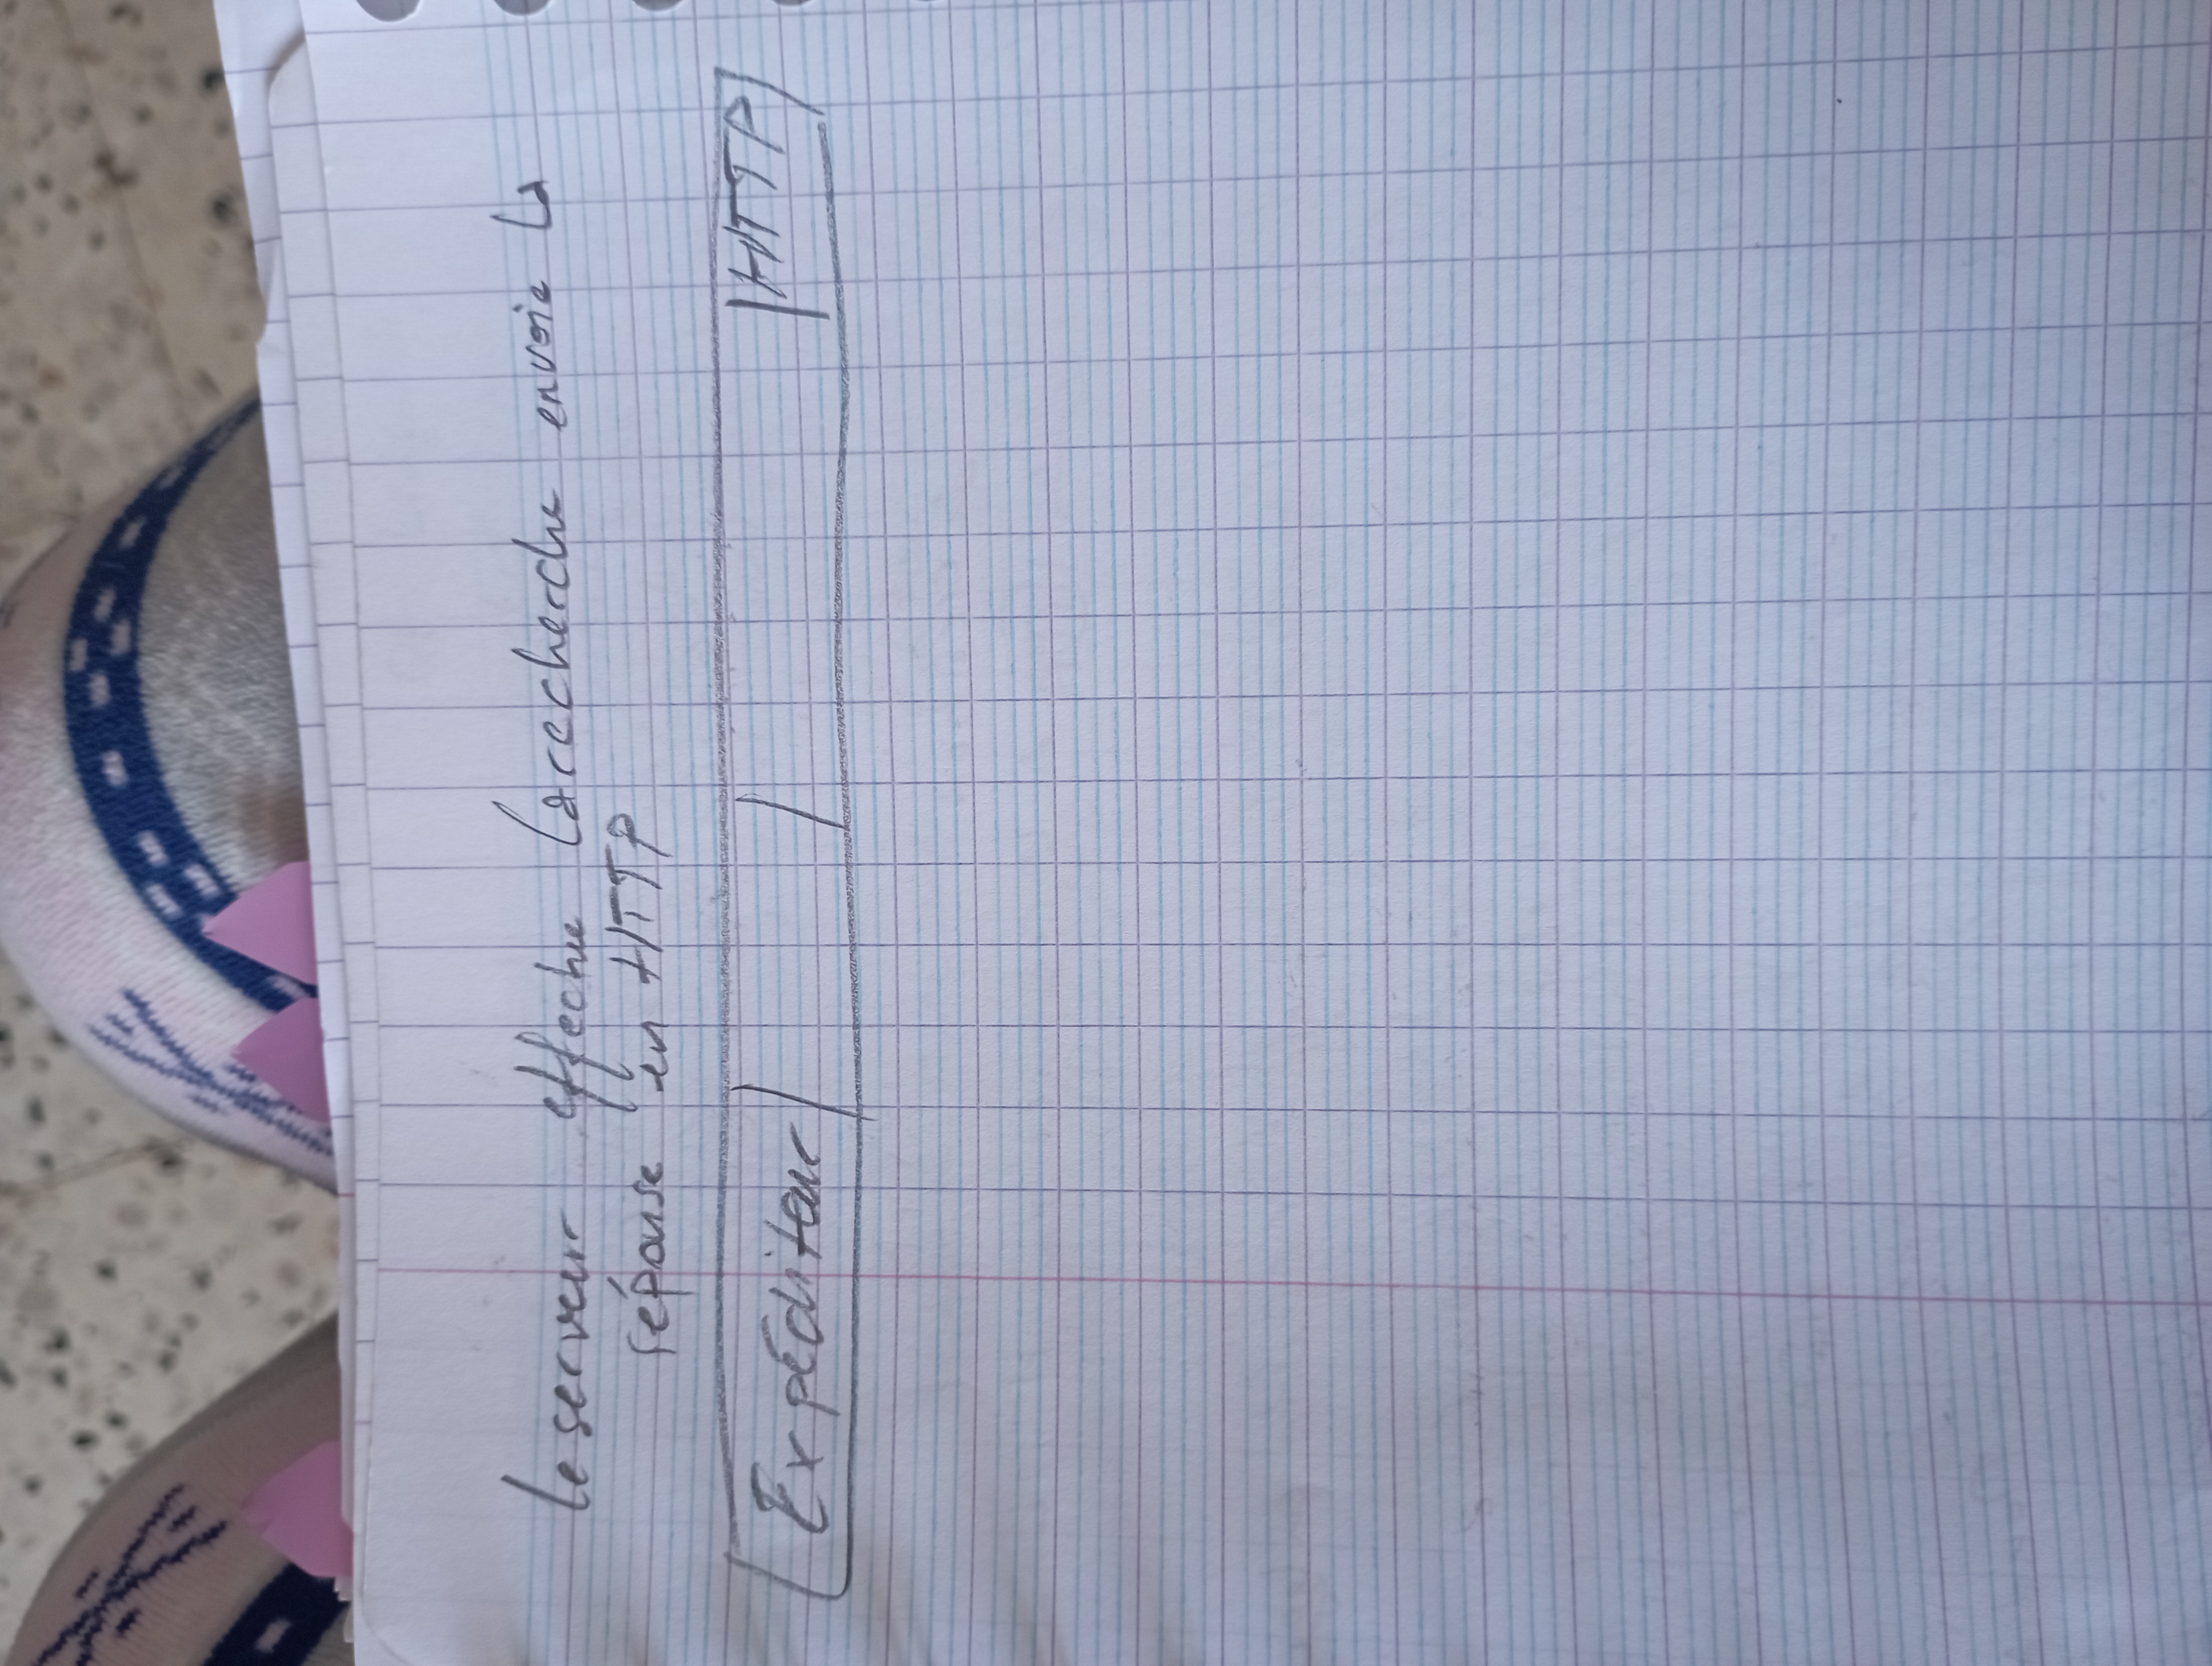 le serveur effectue la recherche envoie la
réponse en HTTP
Expéditeur HTTP